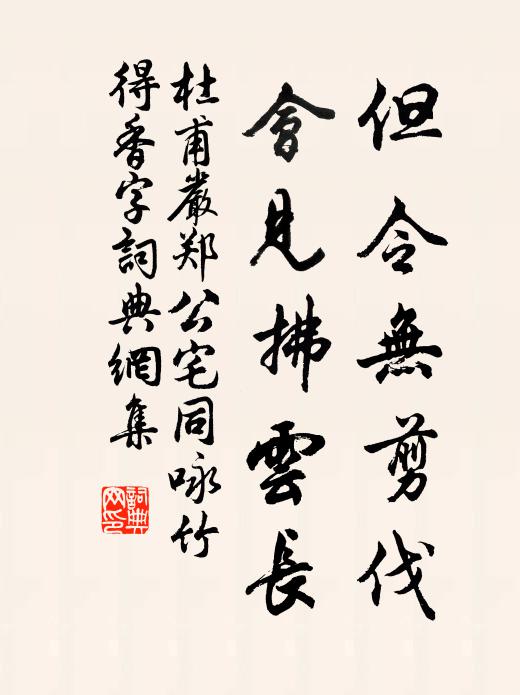 但令無剪伐
會見拂雲長
杜甫嚴郑公宅同咏竹
得香字詞典網集
詞典網印